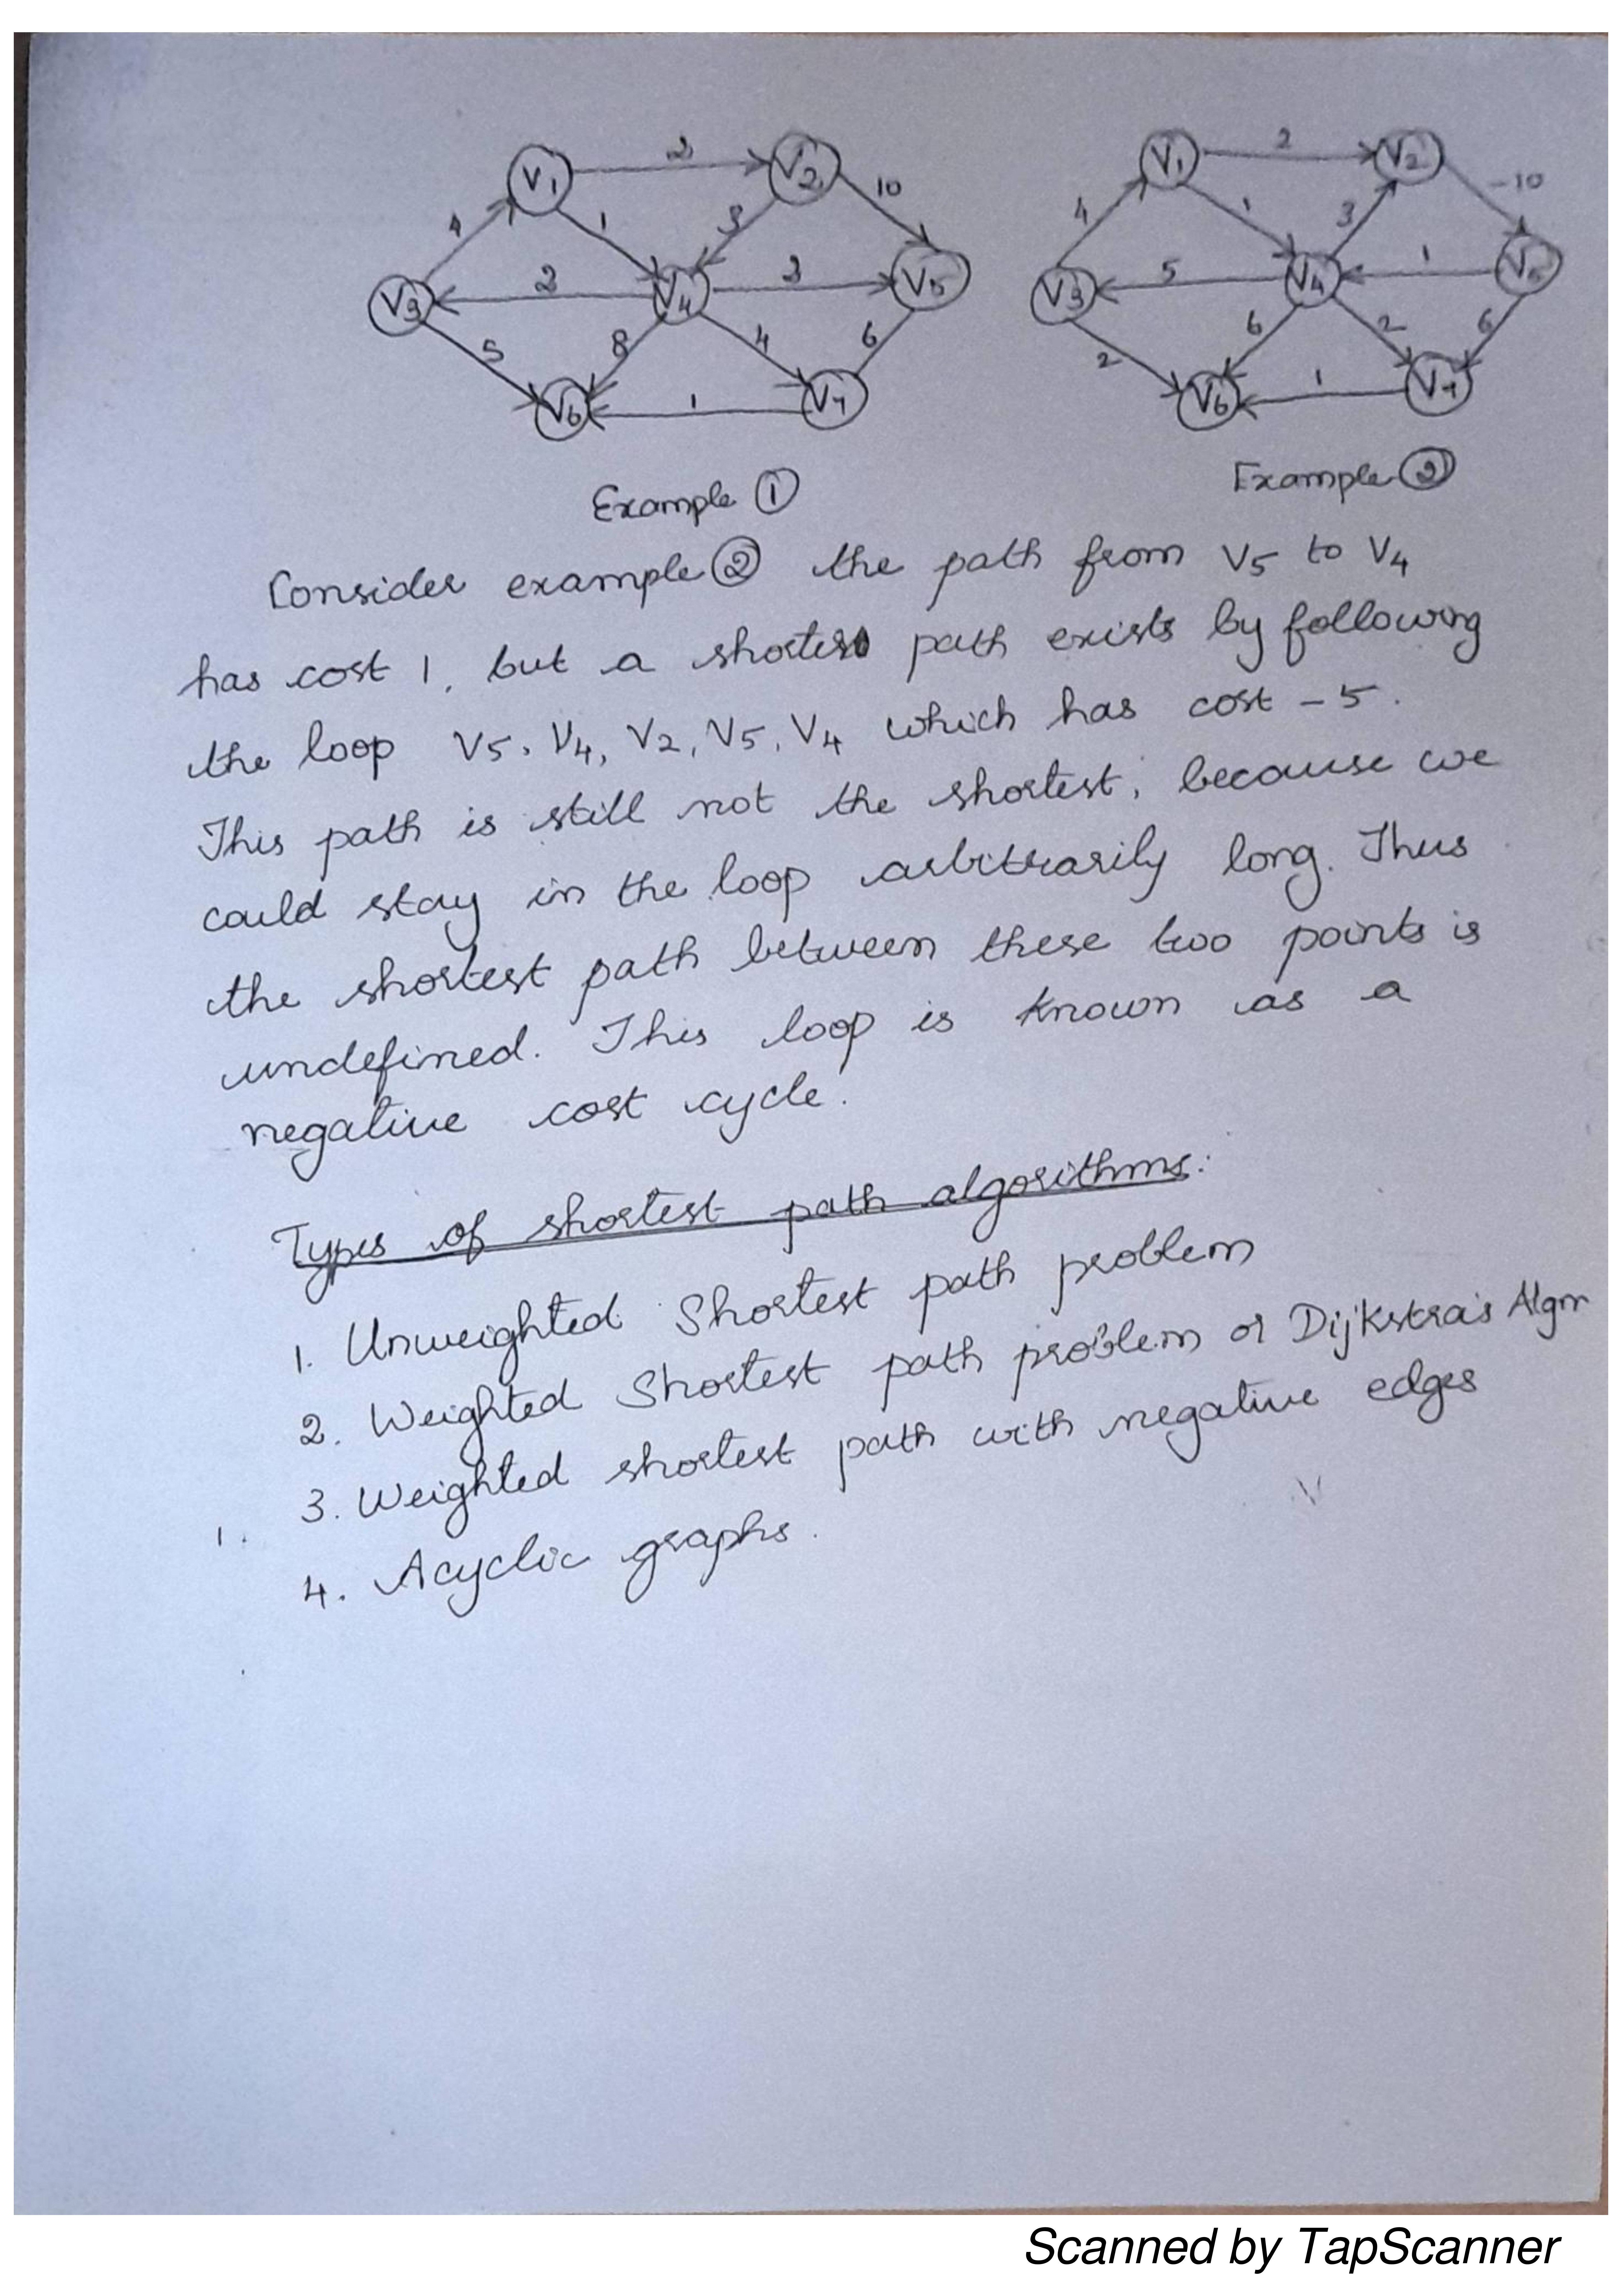 V1 2 V2 10
4 1 3
V3 2 V4 3 V5
5 8 4 6
V6 1 V7
V1 2 V2 -10
4 1 3
V3 5 V4 1 V5
2 6 2 6
V6 1 V7
Example ① Example ②
Consider example ② the path from V5 to V4
has cost 1, but a shorter path exists by following
the loop V5, V4, V2, V5, V4 which has cost -5.
This path is still not the shortest, because we
could stay in the loop arbitrarily long. Thus
the shortest path between these two points is
undefined. This loop is known as a
negative cost cycle.
Types of shortest path algorithms:
1. Unweighted Shortest path problem
2. Weighted Shortest path problem or Dijkstra's Algm
3. Weighted shortest path with negative edges
1.
4. Acyclic graphs.
Scanned by TapScanner